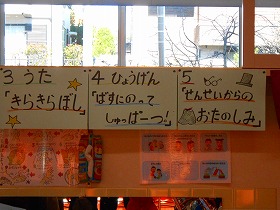 3 うた
「きらきらぼし」
4 ひょうげん
「ばすにのって
しゅっぱーつ!」
5
「せんせいからの
おたのしみ」